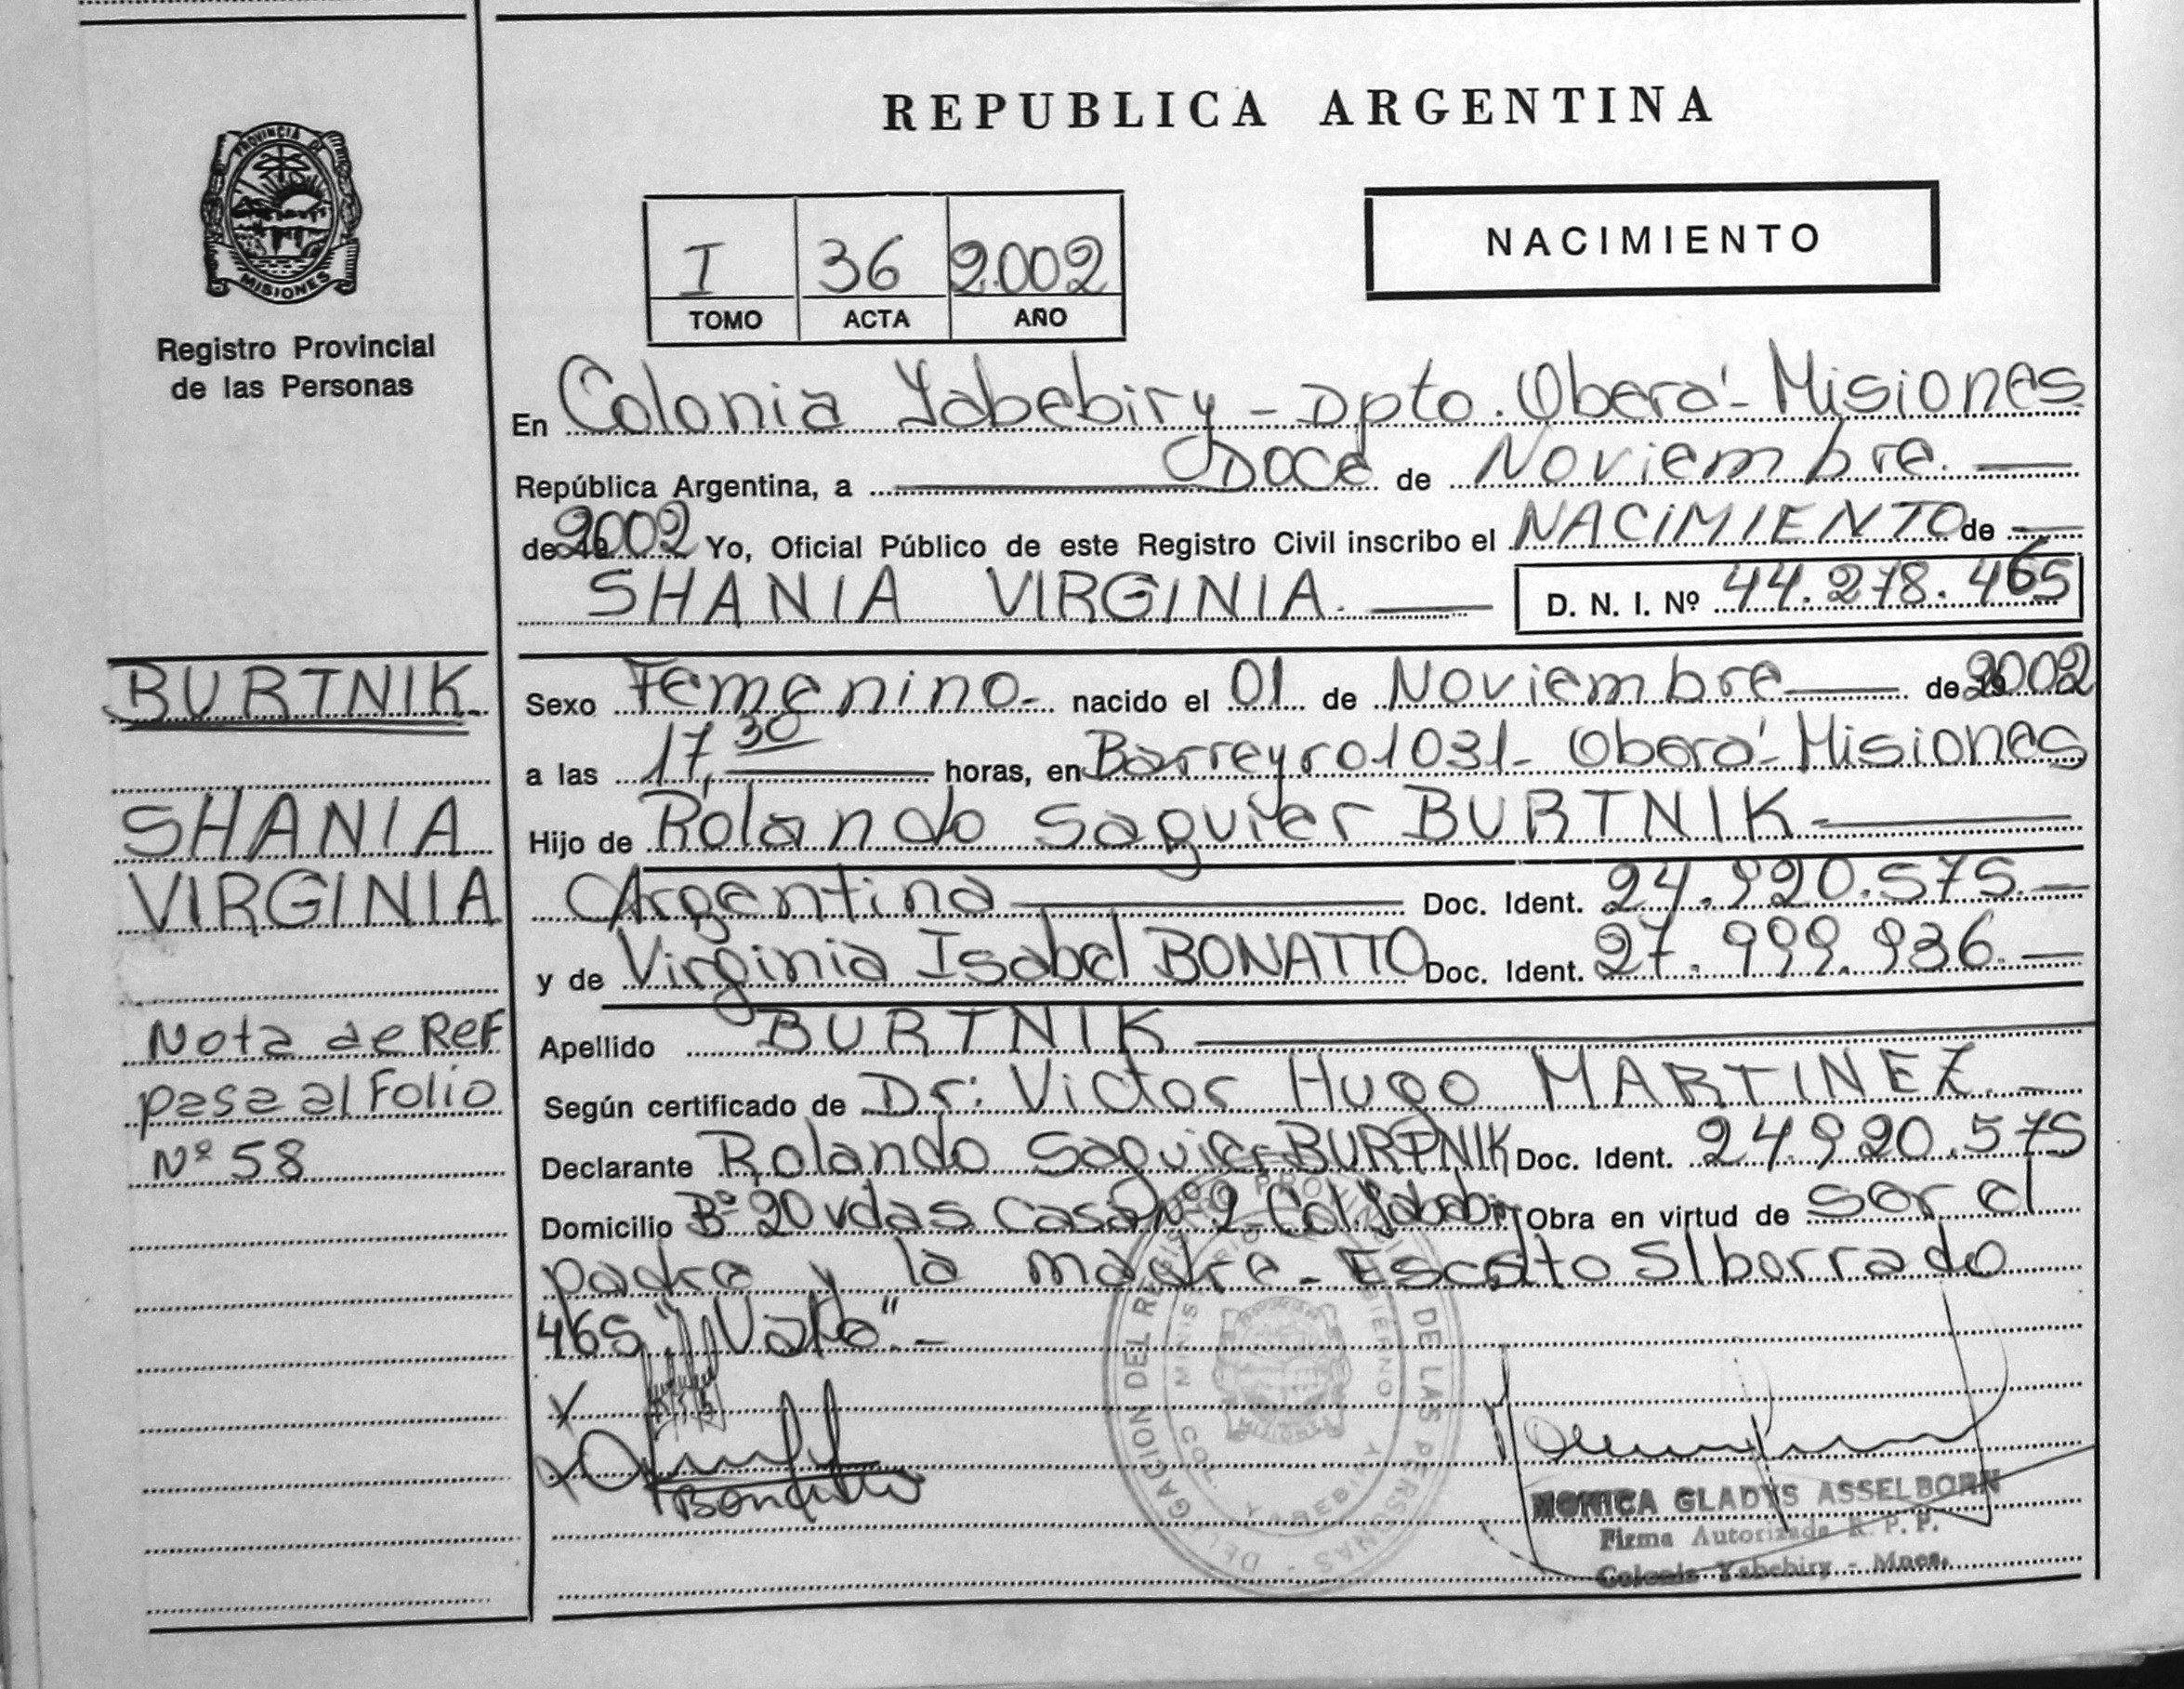 REPUBLICA ARGENTINA
PROVINCIA DE
MISIONES
Registro Provincial
de las Personas
I 36 2.002
TOMO ACTA AÑO
NACIMIENTO
En Colonia Yabebiry - Dpto. Oberá - Misiones
República Argentina, a Doce de Noviembre.
de 19 2002 Yo, Oficial Público de este Registro Civil inscribo el NACIMIENTO de
SHANIA VIRGINIA. D. N. I. Nº 44.278.465
BURTNIK.
SHANIA
VIRGINIA
Nota de Ref
pasa al Folio
Nº 58
Sexo Femenino- nacido el 01 de Noviembre de 19 2002
a las 17,30 horas, en Barreyro 1031- Oberá - Misiones
Hijo de Rolando Saguier BURTNIK-
Argentina Doc. Ident. 24.920.575.-
y de Virginia Isabel BONATTO Doc. Ident. 27.999.936.-
Apellido BURTNIK
Según certificado de Dr: Victor Hugo MARTINEZ.-
Declarante Rolando Saguier BURTNIK Doc. Ident. 24.920.575
Domicilio Bº 20 vdas casa Nº 2 Col. Yabebiry Obra en virtud de ser el
padre y la madre - Escrito S/borrado
465 "Vale".-
Bonatto
DELEGACION DEL REGISTRO PROVINCIAL DE LAS PERSONAS
COL. YABEBIRY
MONICA GLADYS ASSELBORN
Firma Autorizada R. P. P.
Colonia Yabebiry - Mnes.